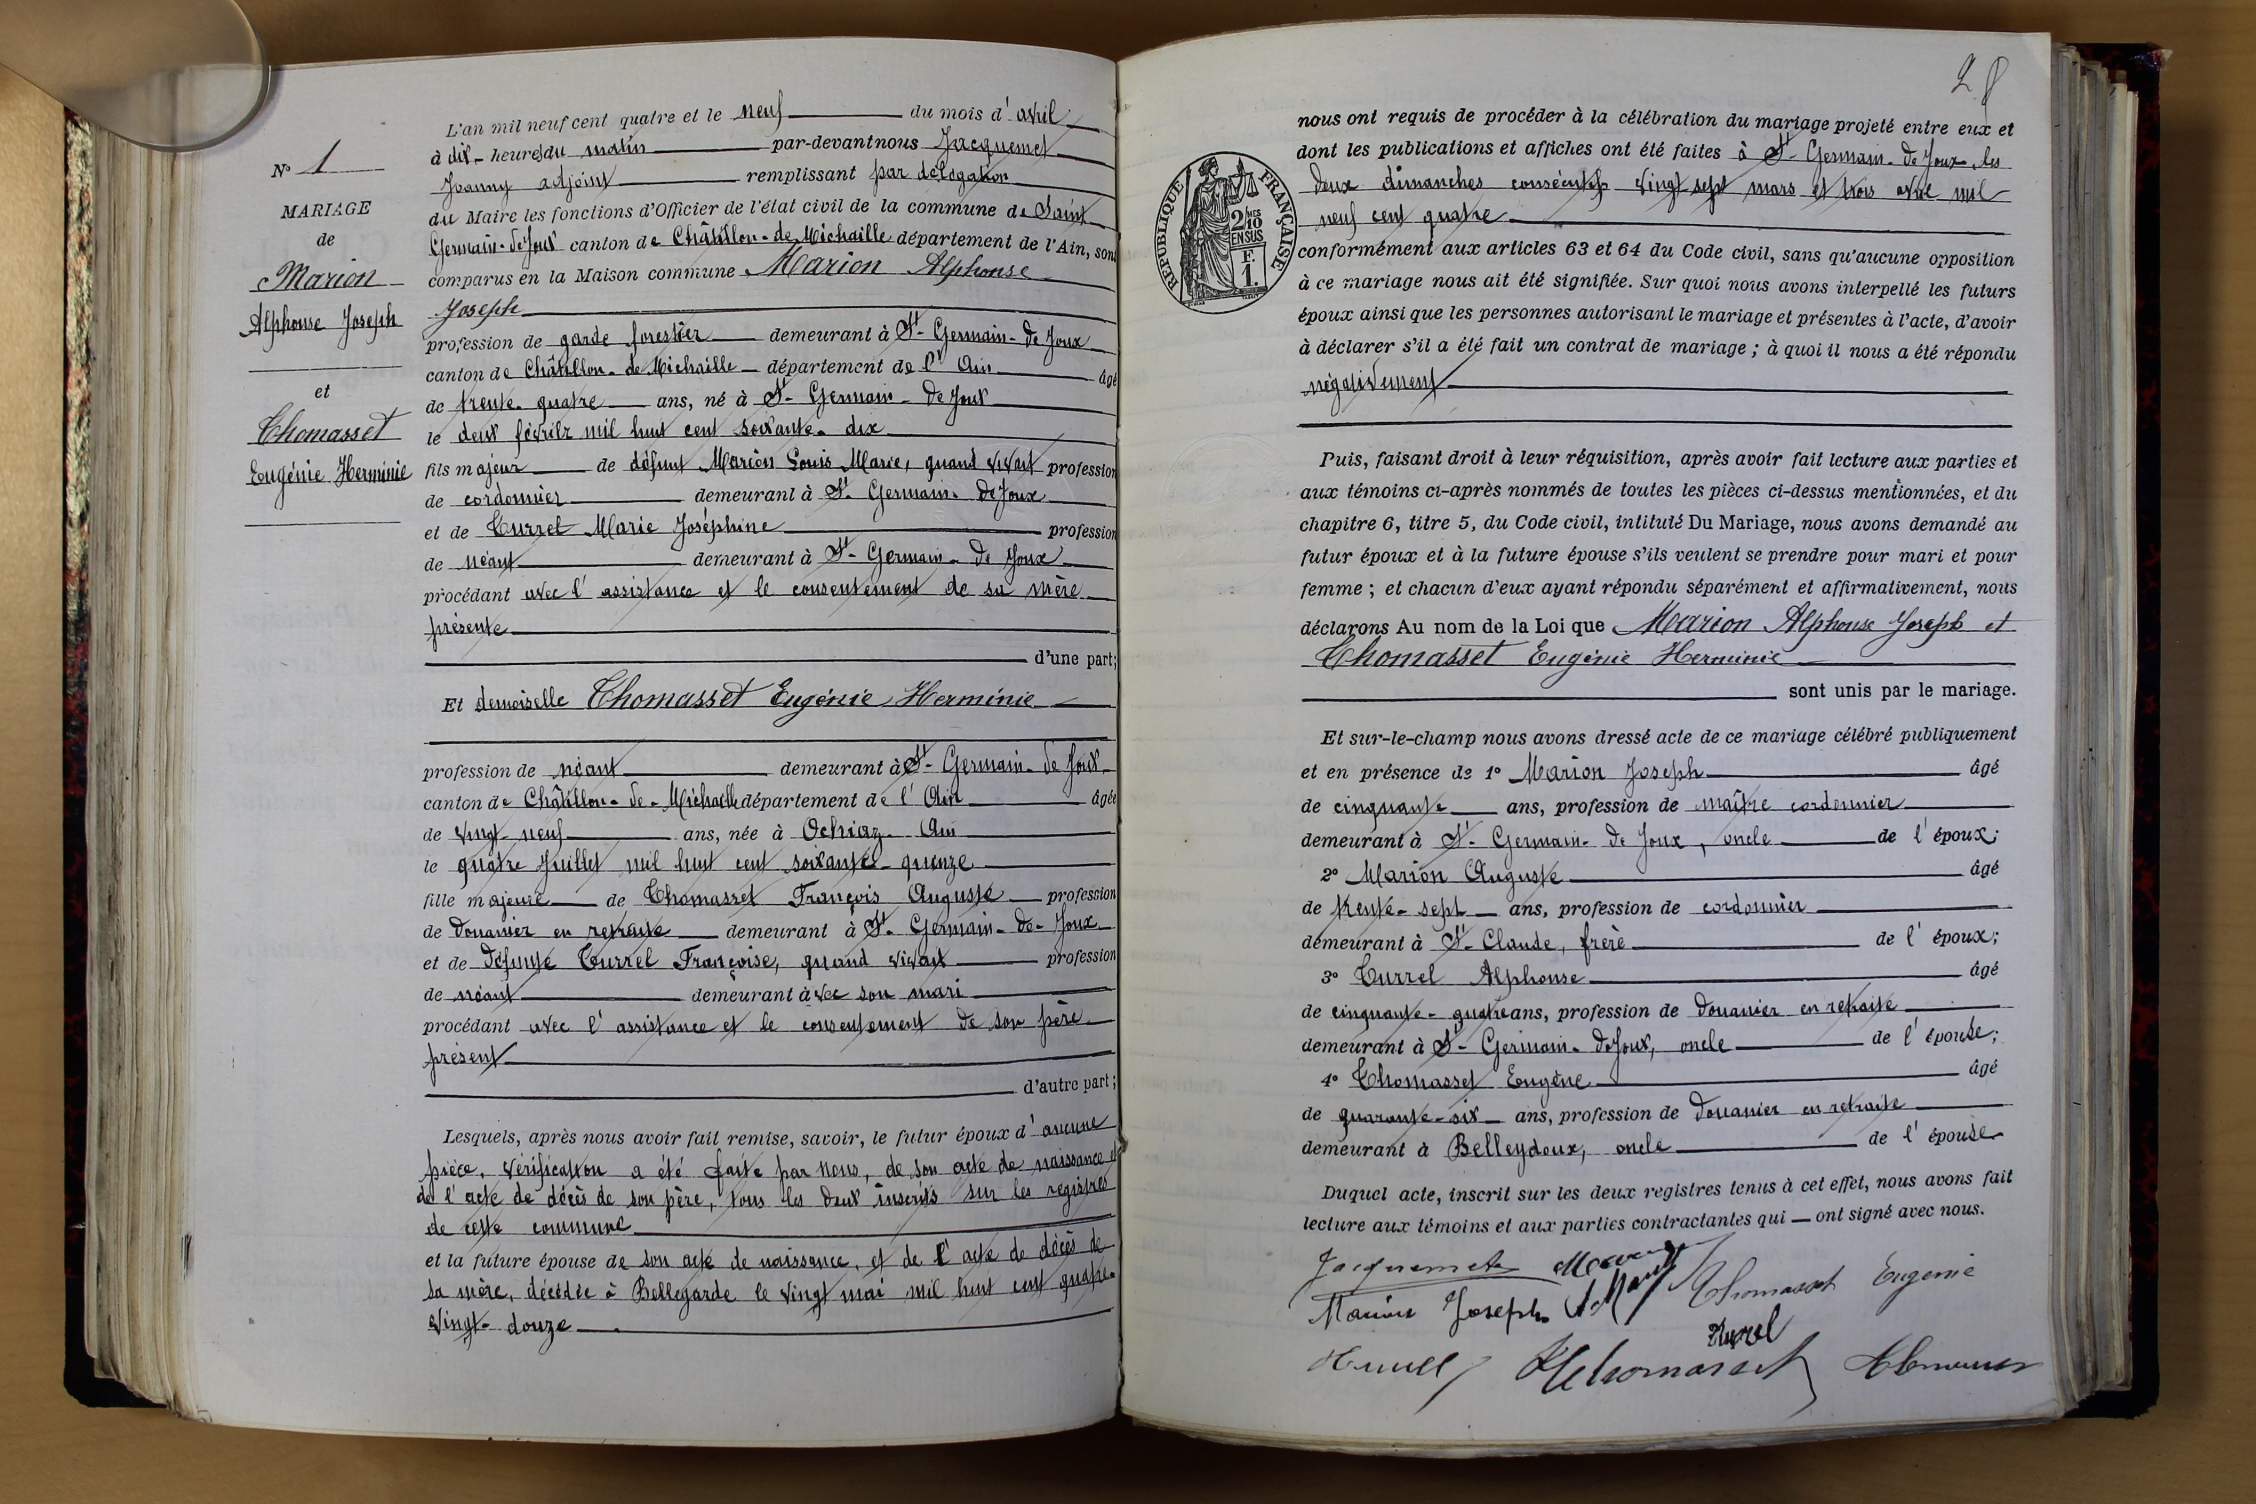 N° 1
MARIAGE
de
Marion
Alphonse Joseph
et
Thomasset
Eugénie Herminie
L'an mil neuf cent quatre et le neuf du mois d'avril
à dix heures du matin par-devant nous Jacquemet
Joanny adjoint remplissant par délégation
du Maire les fonctions d'Officier de l'état civil de la commune de Saint
Germain-de Joux canton de Châtillon-de Michaille département de l'Ain, sont
comparus en la Maison commune Marion Alphonse
Joseph
profession de garde forestier demeurant à St-Germain-de Joux
canton de Châtillon-de Michaille département de l'Ain âgé
de trente-quatre ans, né à St-Germain-de Joux
le deux février mil huit cent soixante-dix
fils majeur de défunt Marion Louis Marie, quand vivait profession
de cordonnier demeurant à St-Germain-de Joux
et de Turrel Marie Joséphine profession
de néant demeurant à St-Germain-de Joux
procédant avec l'assistance et le consentement de sa mère
présente
d'une part;
Et demoiselle Thomasset Eugénie Herminie
profession de néant demeurant à St-Germain-de Joux
canton de Châtillon-de-Michaille département de l'Ain âgée
de vingt-neuf ans, née à Ochiaz Ain
le quatre Juillet mil huit cent soixante-quinze
fille majeure de Thomasset François Auguste profession
de douanier en retraite demeurant à St-Germain-de-Joux
et de défunte Turrel Françoise, quand vivait profession
de néant demeurant avec son mari
procédant avec l'assistance et le consentement de son père
présent
d'autre part;
Lesquels, après nous avoir fait remise, savoir, le futur époux d'aucune
pièce, vérification a été faite par nous, de son acte de naissance et
de l'acte de décès de son père, tous les deux inscrits sur les registres
de cette commune
et la future épouse de son acte de naissance, et de l'acte de décès de
sa mère, décédée à Bellegarde le vingt mai mil huit cent quatre-
vingt-douze
28
RÉPUBLIQUE FRANÇAISE
2/10
MES
EN SUS
F.
1.
nous ont requis de procéder à la célébration du mariage projeté entre eux et
dont les publications et affiches ont été faites à St-Germain-de Joux, les
deux dimanches consécutifs vingt-sept mars et trois avril mil
neuf cent quatre
conformément aux articles 63 et 64 du Code civil, sans qu'aucune opposition
à ce mariage nous ait été signifiée. Sur quoi nous avons interpellé les futurs
époux ainsi que les personnes autorisant le mariage et présentes à l'acte, d'avoir
à déclarer s'il a été fait un contrat de mariage ; à quoi il nous a été répondu
négativement
Puis, faisant droit à leur réquisition, après avoir fait lecture aux parties et
aux témoins ci-après nommés de toutes les pièces ci-dessus mentionnées, et du
chapitre 6, titre 5, du Code civil, intitulé Du Mariage, nous avons demandé au
futur époux et à la future épouse s'ils veulent se prendre pour mari et pour
femme ; et chacun d'eux ayant répondu séparément et affirmativement, nous
déclarons Au nom de la Loi que Marion Alphonse Joseph et
Thomasset Eugénie Herminie
sont unis par le mariage.
Et sur-le-champ nous avons dressé acte de ce mariage célébré publiquement
et en présence de 1° Marion Joseph âgé
de cinquante ans, profession de maître cordonnier
demeurant à St-Germain-de Joux, oncle de l'époux;
2° Marion Auguste âgé
de trente-sept ans, profession de cordonnier
demeurant à St-Claude, frère de l'époux;
3° Turrel Alphonse âgé
de cinquante-quatre ans, profession de douanier en retraite
demeurant à St-Germain-de Joux, oncle de l'épouse;
4° Thomasset Eugène âgé
de quarante-six ans, profession de douanier en retraite
demeurant à Belleydoux, oncle de l'épouse
Duquel acte, inscrit sur les deux registres tenus à cet effet, nous avons fait
lecture aux témoins et aux parties contractantes qui ont signé avec nous.
Jacquemet
Thomasset Eugénie
Marion Joseph
Turel
Thomasset